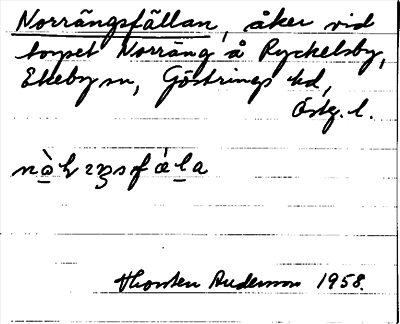 Norrängsfällan, åker vid
torpet Norräng å Ryckelsby,
Ekeby sn, Göstrings hd,
Östg. l.
Thorsten Andersson 1958.